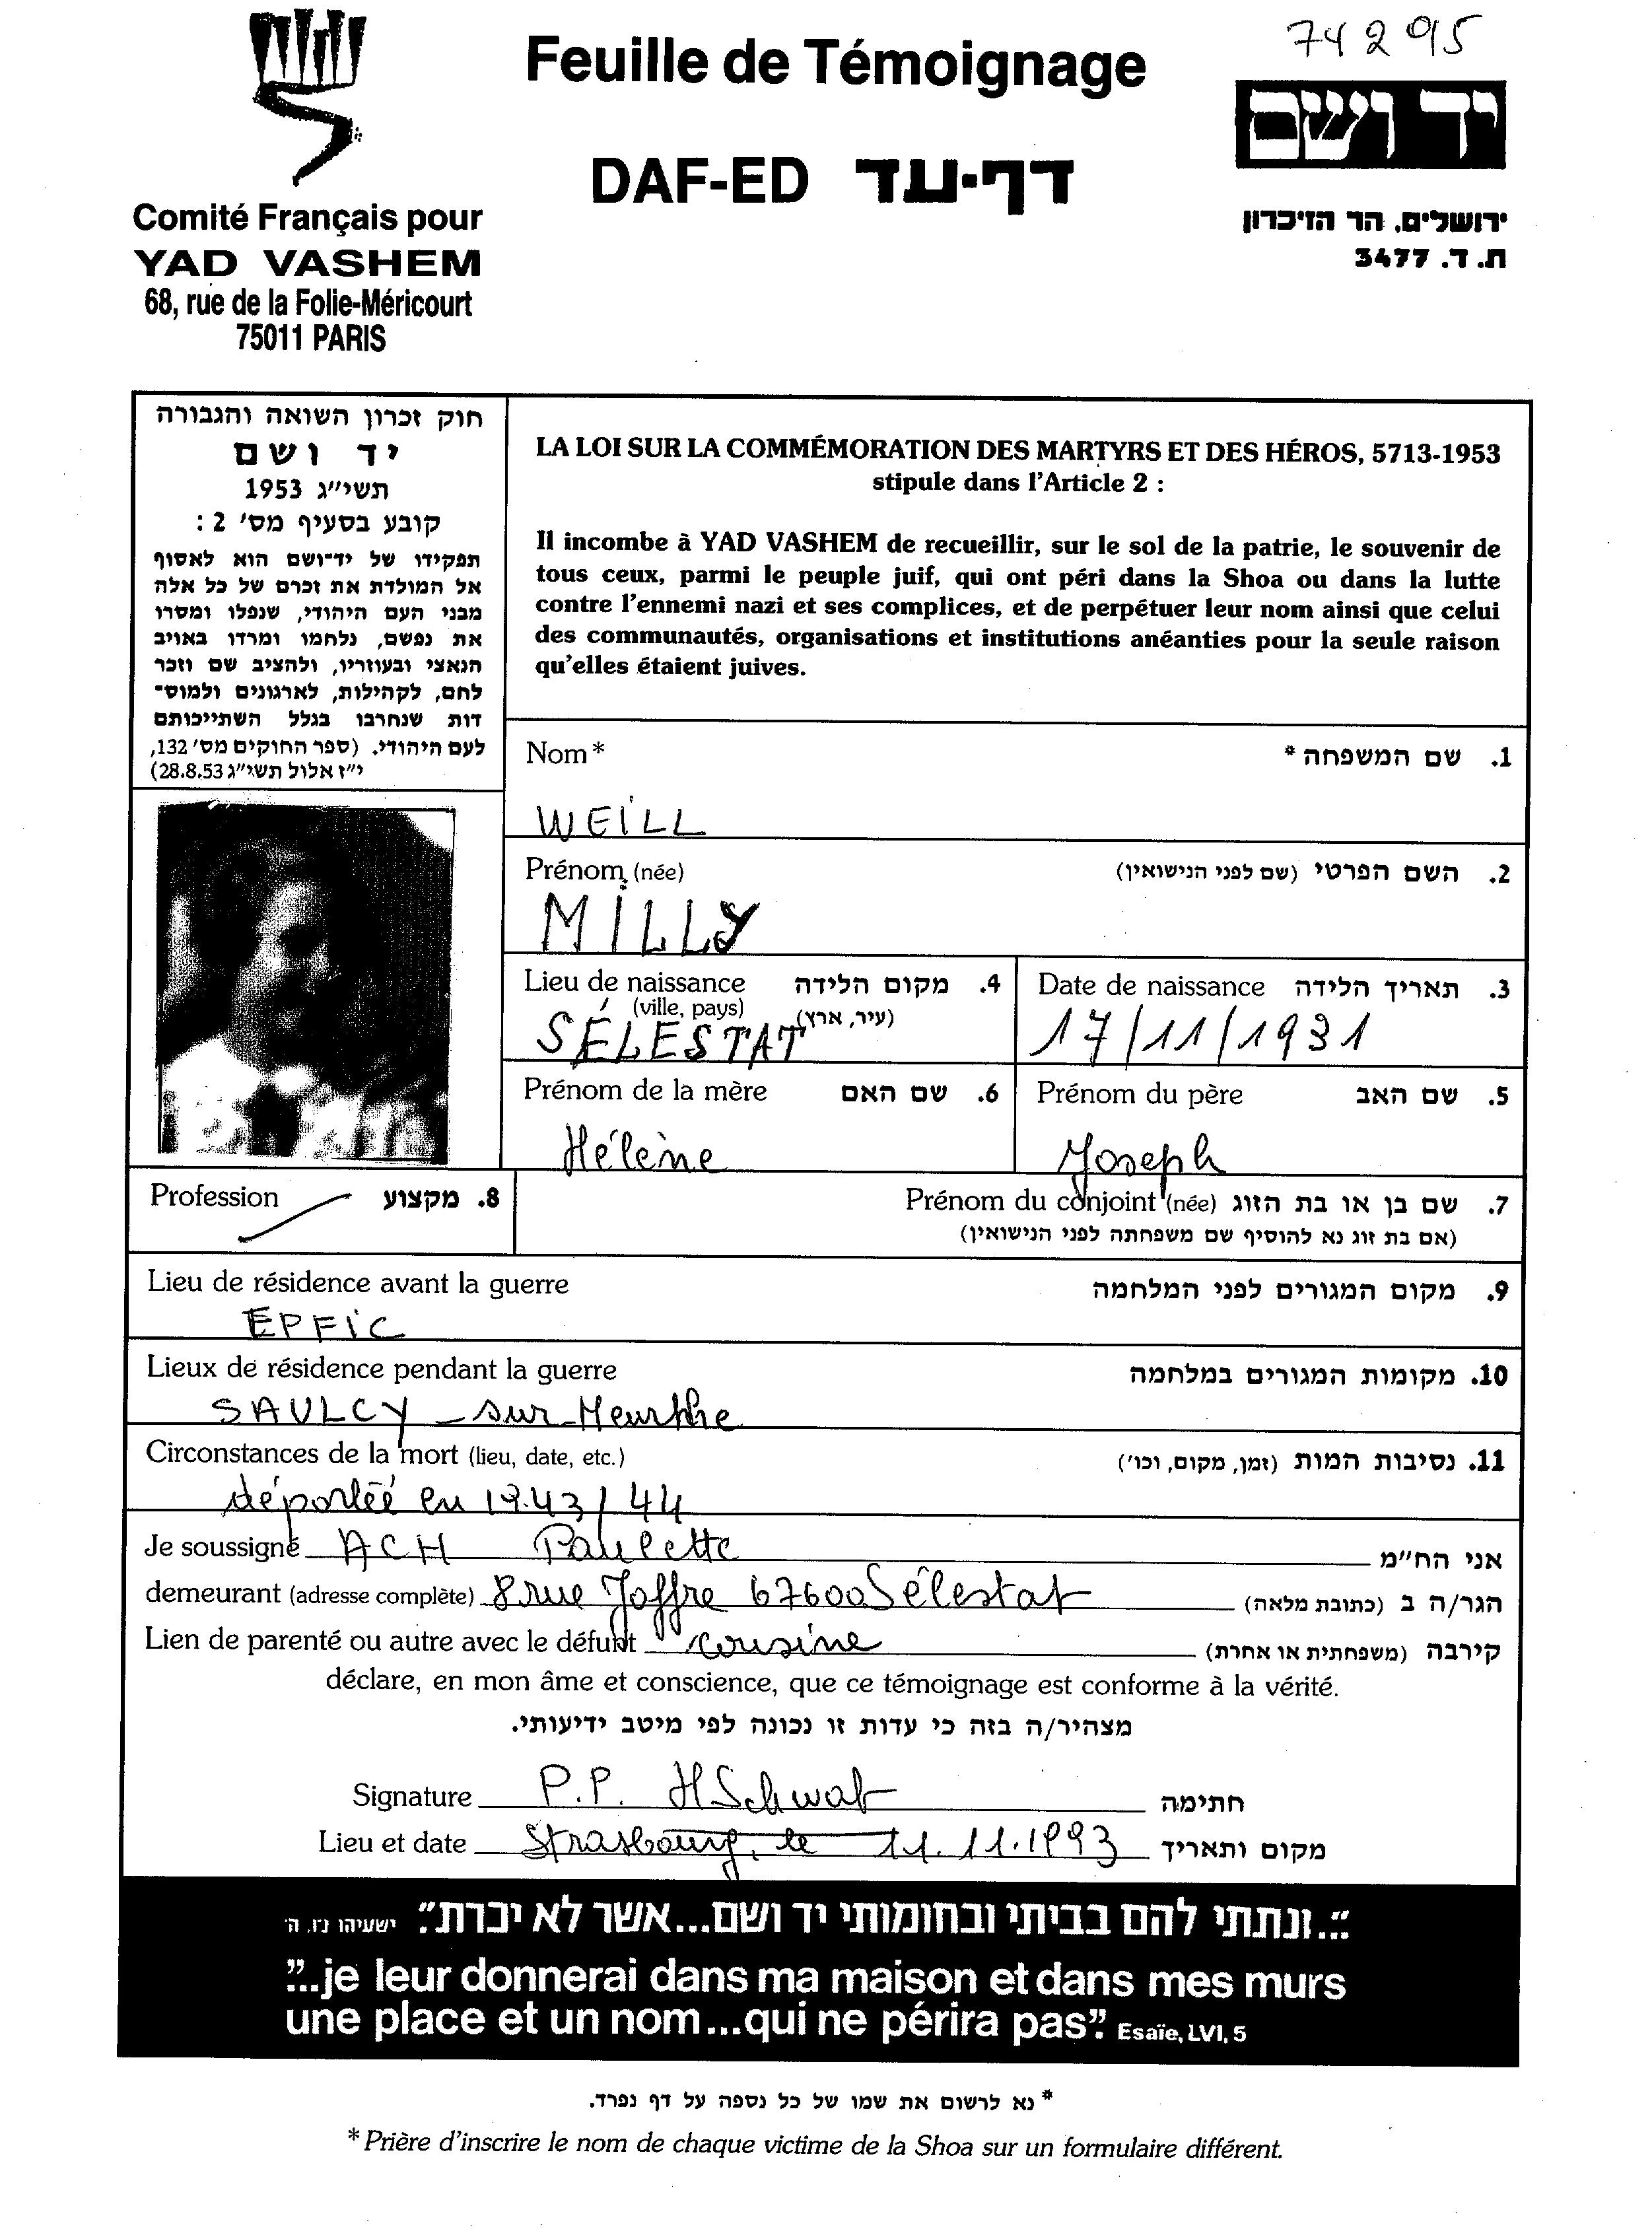 74295
Feuille de Témoignage
DAF-ED דף-עד
יד ושם
ירושלים, הר הזיכרון
ת. ד. 3477
Comité Français pour
YAD VASHEM
68, rue de la Folie-Méricourt
75011 PARIS
חוק זכרון השואה והגבורה
יד ושם
תשי״ג 1953
קובע בסעיף מס׳ 2 :
תפקידו של יד־ושם הוא לאסוף
אל המולדת את זכרם של כל אלה
מבני העם היהודי, שנפלו ומסרו
את נפשם, נלחמו ומרדו באויב
הנאצי ובעוזריו, ולהציב שם וזכר
להם, לקהילות, לארגונים ולמוס־
דות שנחרבו בגלל השתייכותם
לעם היהודי. (ספר החוקים מס׳ 132,
י״ז אלול תשי״ג 28.8.53)
LA LOI SUR LA COMMÉMORATION DES MARTYRS ET DES HÉROS, 5713-1953
stipule dans l'Article 2 :
Il incombe à YAD VASHEM de recueillir, sur le sol de la patrie, le souvenir de
tous ceux, parmi le peuple juif, qui ont péri dans la Shoa ou dans la lutte
contre l'ennemi nazi et ses complices, et de perpétuer leur nom ainsi que celui
des communautés, organisations et institutions anéanties pour la seule raison
qu'elles étaient juives.
Nom* 1. שם המשפחה *
WEILL
Prénom (née) 2. השם הפרטי (שם לפני הנישואין)
MILLY
Lieu de naissance 4. מקום הלידה
(ville, pays) (עיר, ארץ)
SÉLESTAT
Date de naissance 3. תאריך הלידה
17/11/1931
Prénom de la mère 6. שם האם
Hélène
Prénom du père 5. שם האב
Joseph
Profession 8. מקצוע
Prénom du conjoint (née) 7. שם בן או בת הזוג
(אם בת זוג נא להוסיף שם משפחתה לפני הנישואין)
Lieu de résidence avant la guerre 9. מקום המגורים לפני המלחמה
EPFIC
Lieux de résidence pendant la guerre 10. מקומות המגורים במלחמה
SAULCY-sur-Meurthe
Circonstances de la mort (lieu, date, etc.) 11. נסיבות המות (זמן, מקום, וכו׳)
déportéé en 1943/44
Je soussigné ACH Paulette אני הח״מ
demeurant (adresse complète) 8 rue Joffre 67600 Sélestat הגר/ה ב (כתובת מלאה)
Lien de parenté ou autre avec le défunt cousine קירבה (משפחתית או אחרת)
déclare, en mon âme et conscience, que ce témoignage est conforme à la vérité.
מצהיר/ה בזה כי עדות זו נכונה לפי מיטב ידיעותי.
Signature P.P. HSchwab חתימה
Lieu et date Strasbourg, le 11.11.1993 מקום ותאריך
״...ונתתי להם בביתי ובחומותי יד ושם...אשר לא יכרת״. ישעיהו נ״ו, ה׳
"...je leur donnerai dans ma maison et dans mes murs
une place et un nom...qui ne périra pas". Esaïe, LVI, 5
* נא לרשום את שמו של כל נספה על דף נפרד.
* Prière d'inscrire le nom de chaque victime de la Shoa sur un formulaire différent.